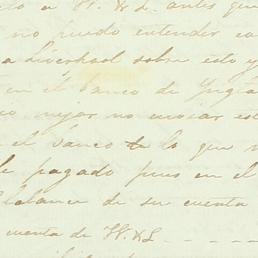 a W. & L. antes que
no puedo entender
a Liverpool sobre esto y
en el banco de Ingla
mejor no enviar est
el banco de lo que
pagado pues en el
balance de su cuenta
cuenta de W. & L - - - -